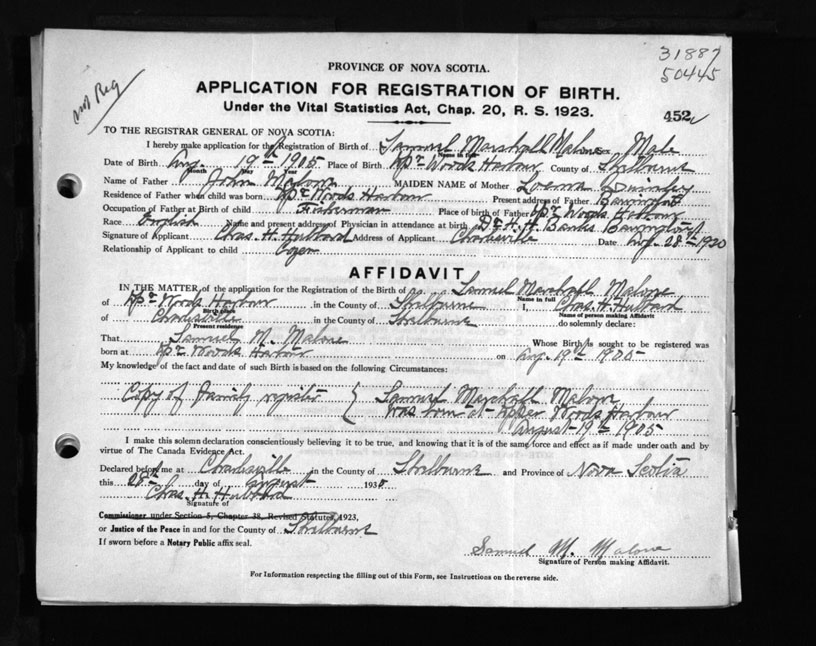 31887
50445
not Reg
PROVINCE OF NOVA SCOTIA.
APPLICATION FOR REGISTRATION OF BIRTH.
Under the Vital Statistics Act, Chap. 20, R. S. 1923.
452
TO THE REGISTRAR GENERAL OF NOVA SCOTIA:
I hereby make application for the Registration of Birth of Samuel Marshall Malone Sex Male
Name in full
Date of Birth Aug. 19th 1905 Place of Birth Upr Woods Harbour County of Shelburne
Month Day Year
Name of Father John Malone MAIDEN NAME of Mother
Residence of Father when child was born Upr Woods Harbour Present address of Father Barrington
Occupation of Father at Birth of child Fisherman Place of birth of Father Upr Woods Harbour
Race English Name and present address of Physician in attendance at birth Dr. H. H. Banks Barrington
Signature of Applicant Chas. H. Hubbard Address of Applicant Charlesville Date Aug. 28th 1930
Relationship of Applicant to child
AFFIDAVIT
IN THE MATTER of the application for the Registration of the Birth of Samuel Marshall Malone
Name in full
of Upr Woods Harbour in the County of Shelburne I, Chas. H. Hubbard
Birth place Name of person making Affidavit
of Charlesville in the County of Shelburne do solemnly declare:
Present residence
That Samuel M. Malone Whose Birth is sought to be registered was
born at Upr Woods Harbour on Aug 19th 1905
My knowledge of the fact and date of such Birth is based on the following Circumstances:
Copy of Family register } Samuel Marshall Malone
was born at Upper Woods Harbour
August 19th 1905
I make this solemn declaration conscientiously believing it to be true, and knowing that it is of the same force and effect as if made under oath and by
virtue of The Canada Evidence Act.
Declared before me at Charlesville in the County of Shelburne and Province of Nova Scotia
this 28th day of August 1930
Chas. H. Hubbard
Signature of
Commissioner under Section 5, Chapter 38, Revised Statutes, 1923,
or Justice of the Peace in and for the County of Shelburne
If sworn before a Notary Public affix seal.
Samuel M. Malone
Signature of Person making Affidavit.
For Information respecting the filling out of this Form, see Instructions on the reverse side.